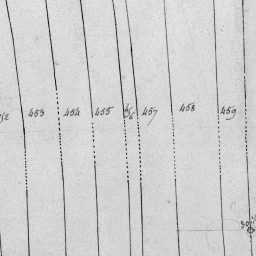 453 454 455 456 457 458 459